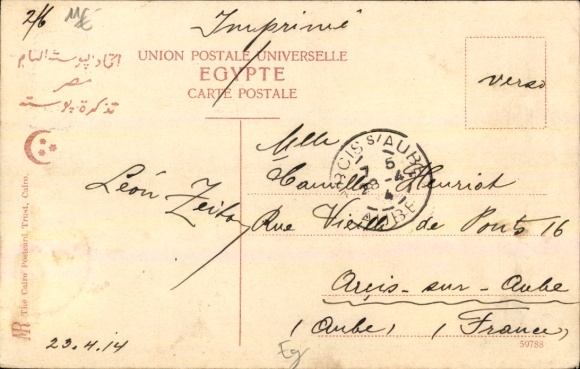 2/6
Imprimé
اتحاد پوستة العام
مصر
تذكرة پوستة
UNION POSTALE UNIVERSELLE
EGYPTE
CARTE POSTALE
verso
Mlle
Camille Henriot
Rue Vieille de Ponts 16
Arcis-sur-Aube
(Aube) (France)
ARCIS S/AUBE
AUBE
Léon
23.4.14
The Cairo Postcard Trust, Cairo.
59788
Eg